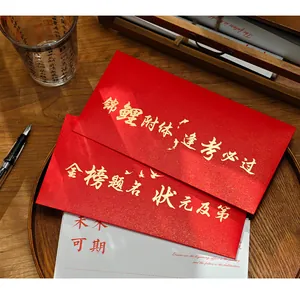 锦鲤附体 逢考必过
金榜题名 状元及第
未来
可期